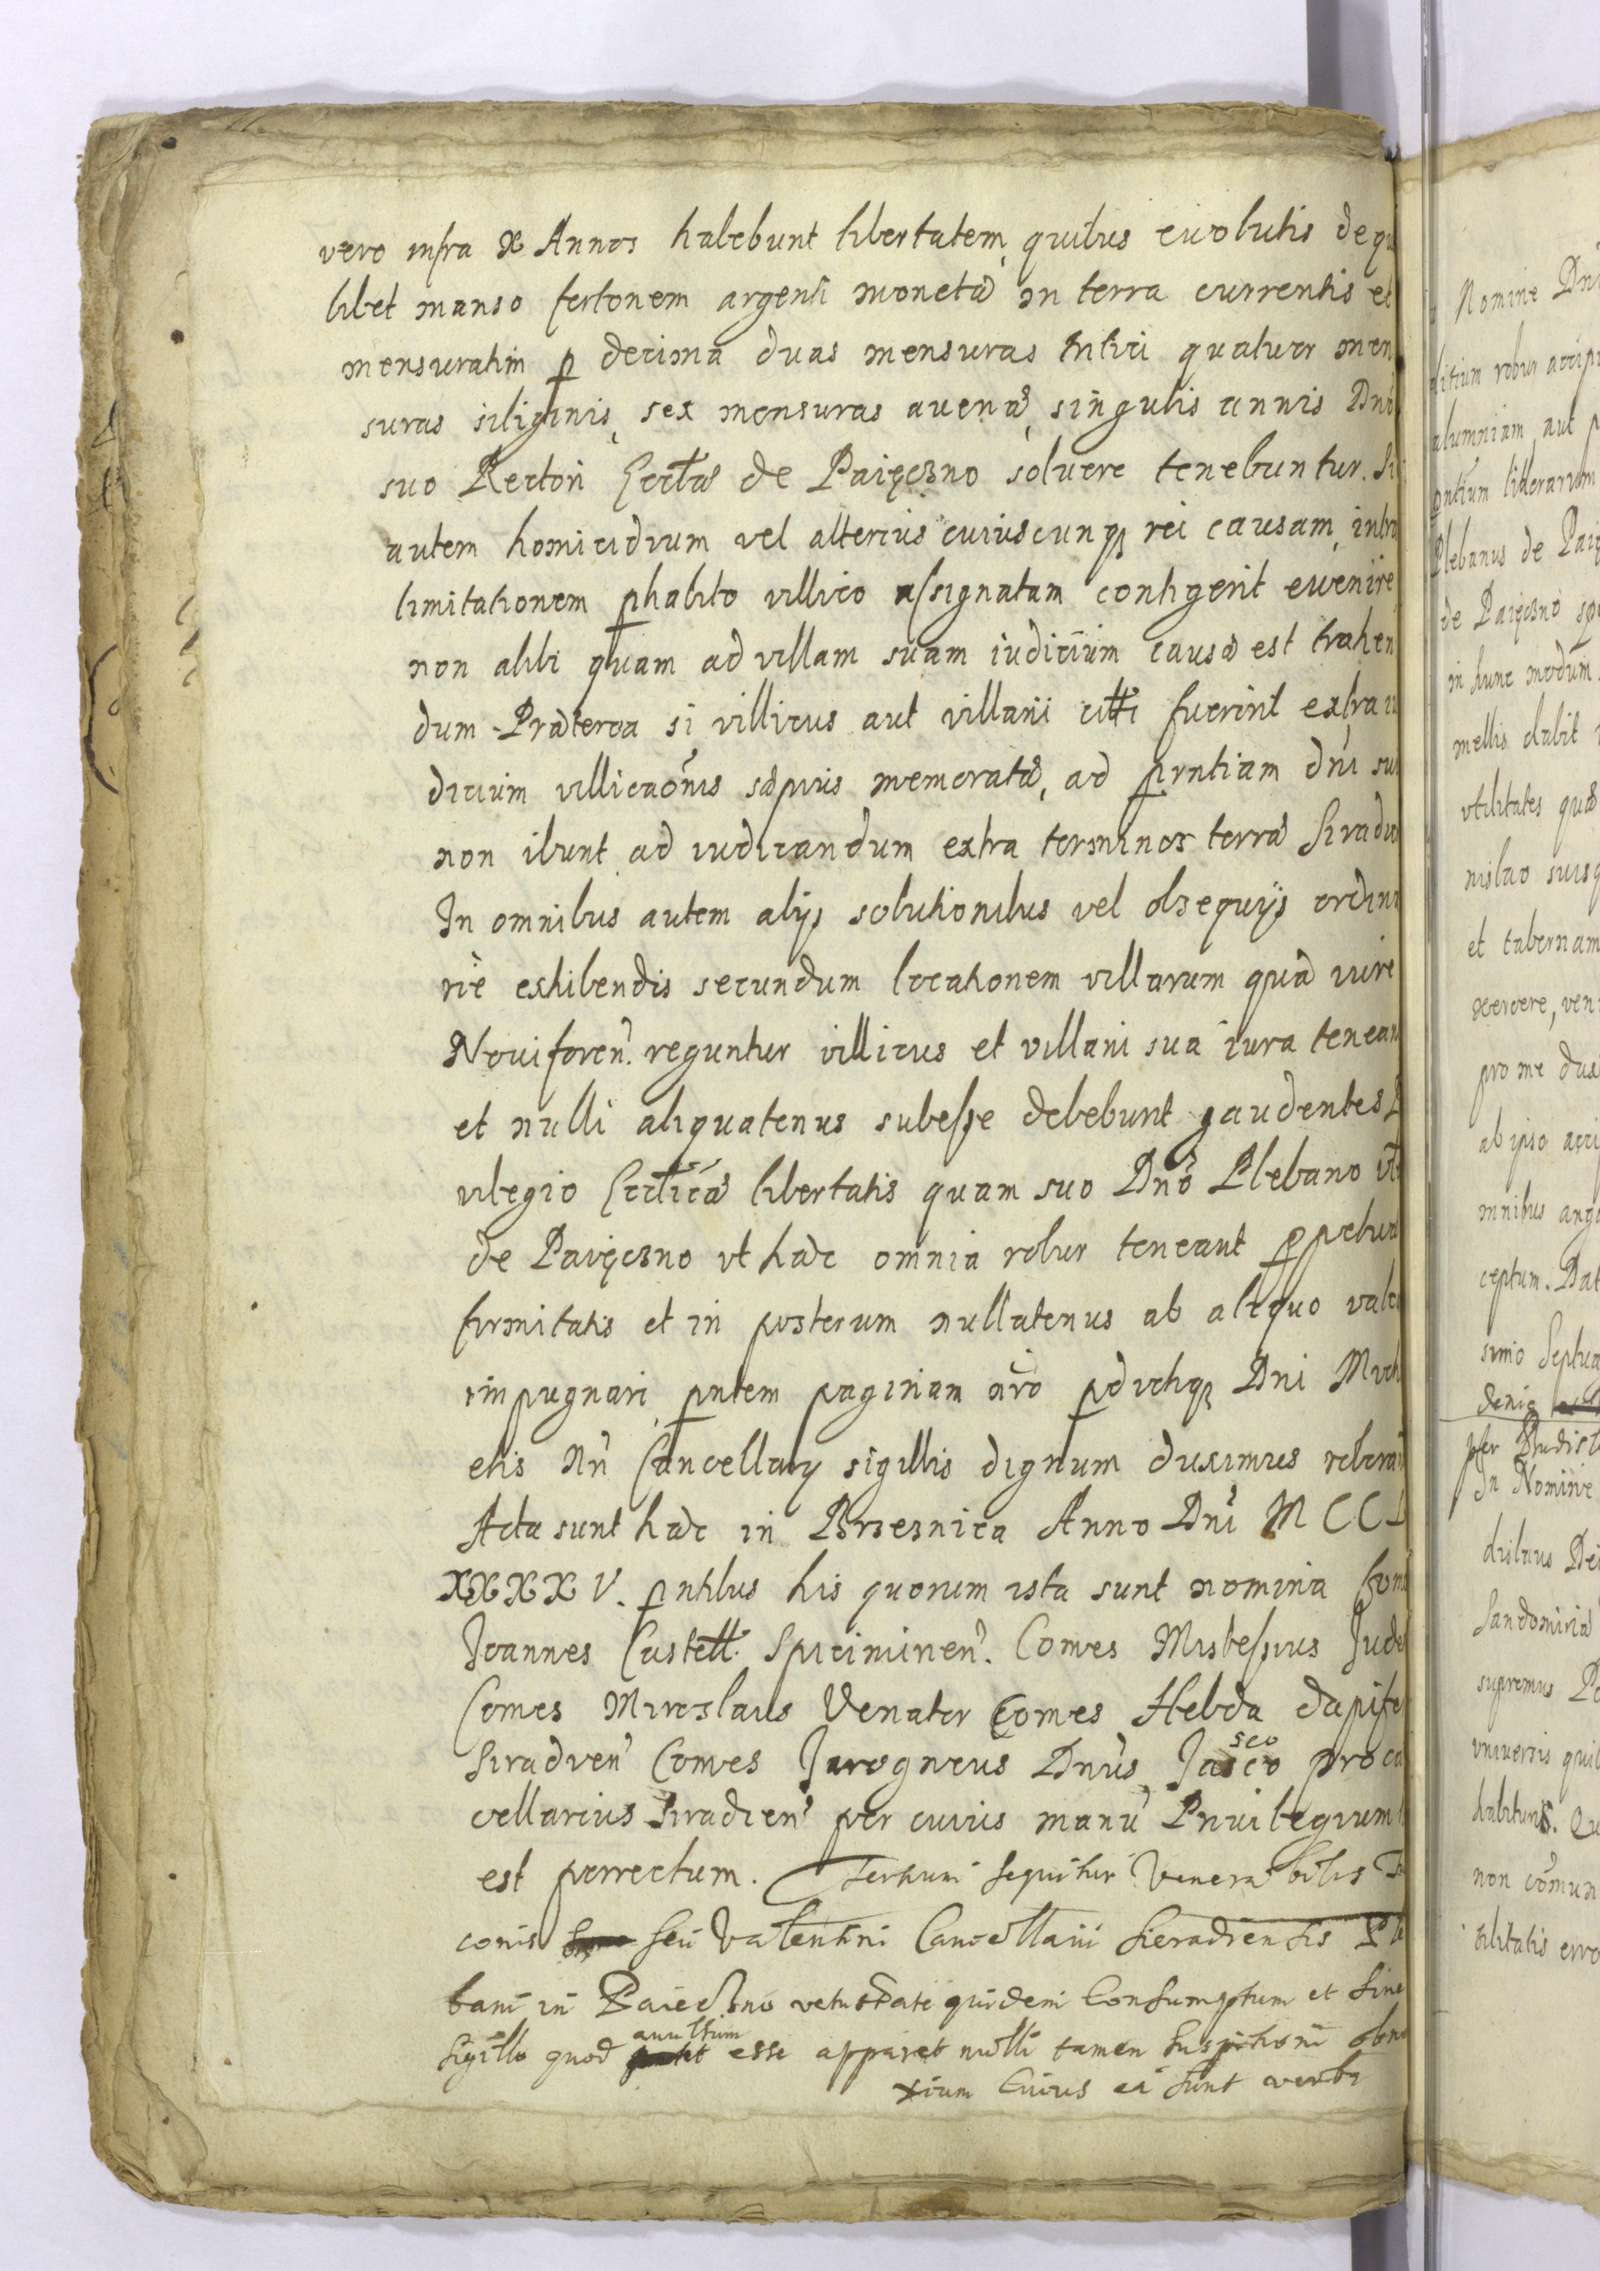 vero infra x Annos habebunt libertatem, quibus evolutis de qu
libet manso fertonem argenti monetæ in terra currentis et
mensuratim p decima duas mensuras tritici quatuor men
suras siliginis, sex mensuras avenæ, singulis annis Dno
suo Rectori Eccltæ de Paięczno solvere tenebuntur. Si
autem homicidium vel alterius cuiuscunq rei causam, intra
limitationem phabito villico assignatam contigerit evenire
non alibi quam ad villam suam iudicium causæ est trahen
dum. Præterea si villicus aut villani citti fuerint extra iu
dicium villicaonis sæpius memoratæ, ad prntiam dni sui
non ibunt ad iudicandum extra terminos terræ Siradien
In omnibus autem alijs solutionibus vel obsequijs ordina
rie exhibendis secundum locationem villarum quæ iure
Noviforen. reguntur villicus et villani sua iura teneant
et nulli aliquatenus subesse debebunt gaudentes P
vilegio Eccticæ libertatis quam suo Dno Plebano
de Paięczno vt hæc omnia robur teneant perpetuæ
firmitatis et in posterum nullatenus ab aliquo vale
impugnari pntem paginam nro pdictiq Dni Mich
elis Nri Cancellarij sigillis dignum duximus roborand
Acta sunt hæc in Brzeznica Anno Dni M C C L
XXXX V. pntibus his quorum ista sunt nomina Com
Joannes Castell. Spicimiren. Comes Mistessius Jude
Comes Miroslaus Venator Comes Hebda dapifer
Siradien Comes Jarogneus Dnus Jasco sco proca
cellarius Siradien per cuius manu Privilegium
est porrectum. Tertium sequitur Venerabilis
conis seu Valentini Cancellarii Sieradiensis Ple
bani in Paieczno vetustate quidem Consumptum et sine
sigillo quod avulsum esse apparet nulli tamen suspitioni obno
xium Cuius ea sunt verba
Nomine Dni
robur accip
alumniam aut p
ntium litterarum
Plebanus de Paię
de Paięczno
in hunc modum
mellis dabit
vtilitates quæ
nislao suisq
et tabernam
xercere, ven
pro me dux
ab ipso acci
mnibus anga
ceptum. Dat
simo Septua
denie
In Nomine
dislaus Dei
Sandomiriæ
supremus
vniversis qui
habituris. Qu
non comun
bilitatis erro